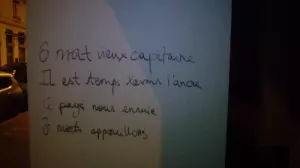 O mort vieux capitaine
Il est temps levons l'ancre
Ce pays nous ennuie
Ô mort appareillons